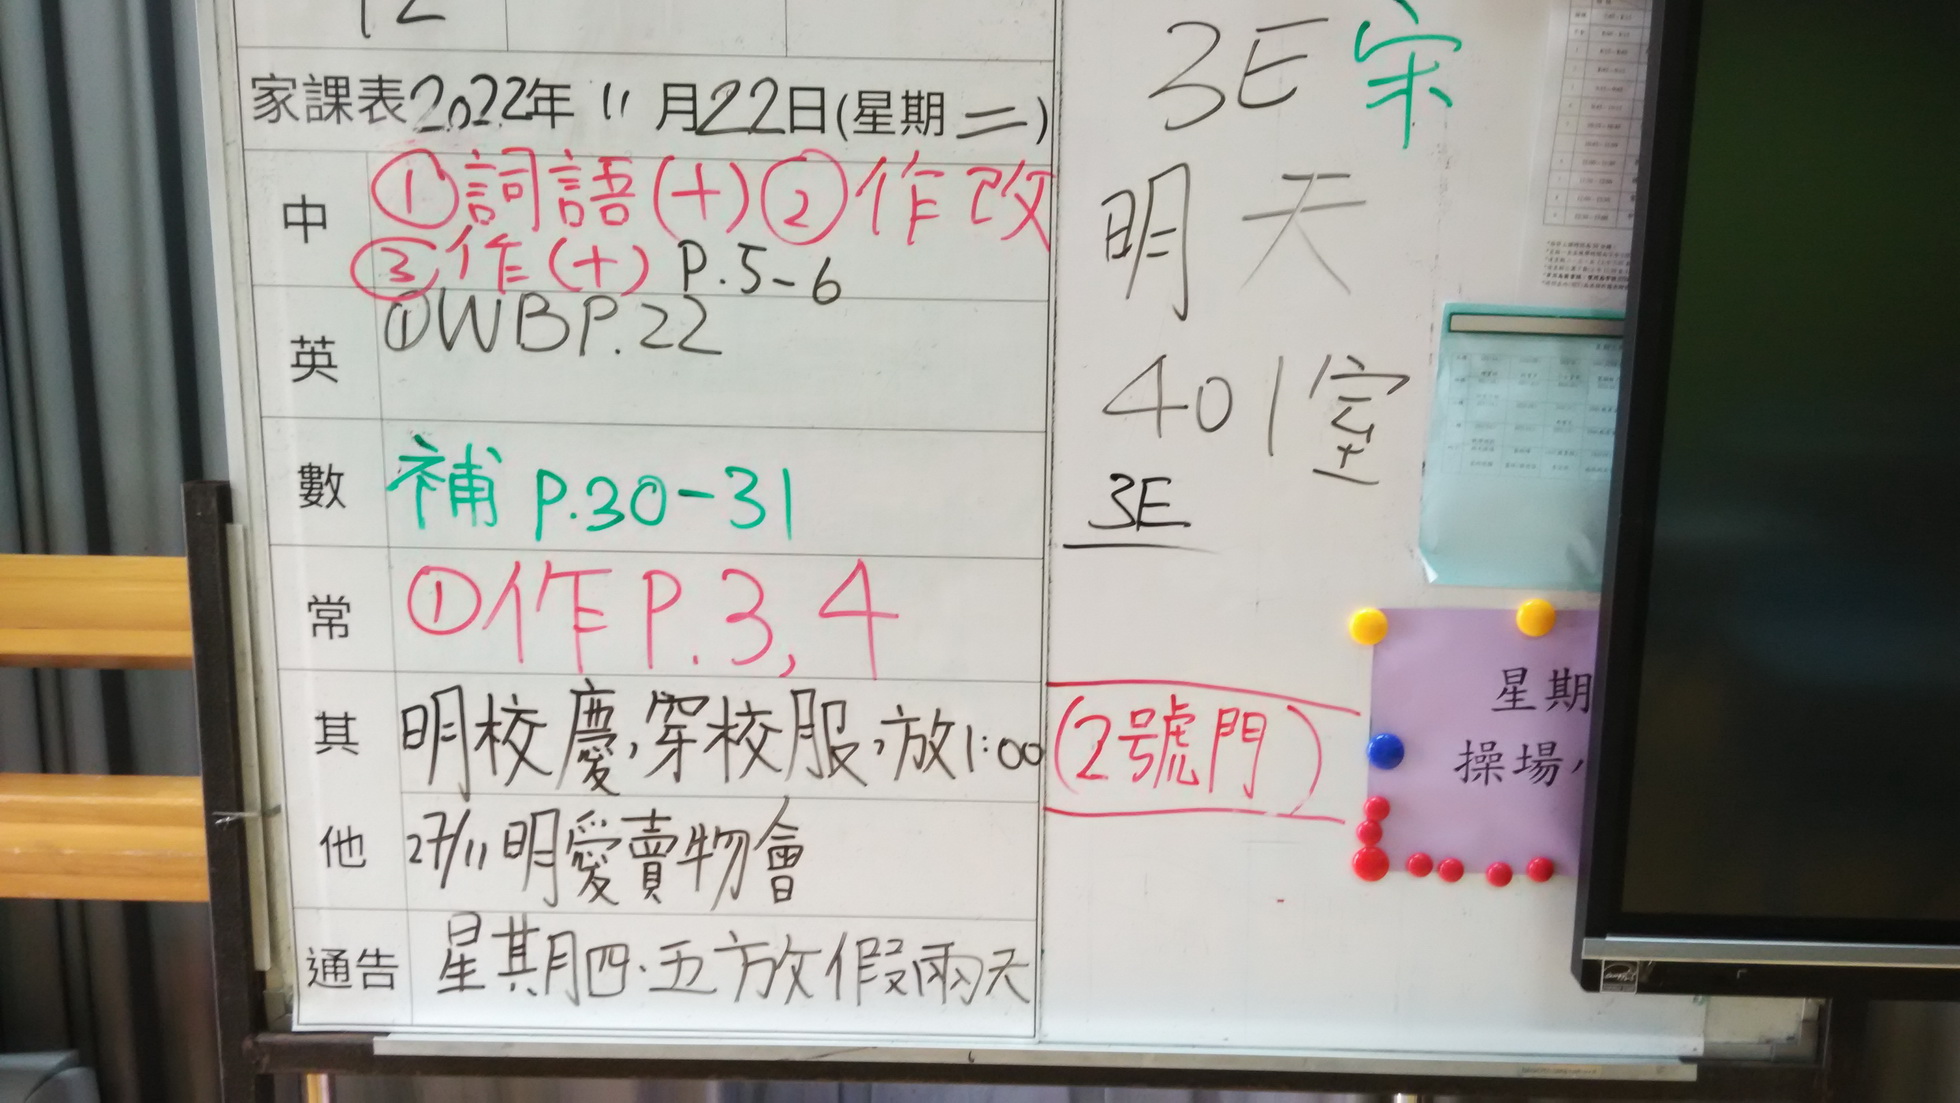 12
家課表2022年 11 月22日(星期 二)
中
①詞語(十)②作改
③作(十) P.5-6
英
①WBP.22
數
補 P.30-31
常
①作P.3,4
其
明校慶,穿校服,放1:00(2號門)
他
27/11明愛賣物會
通告
星期四.五放假兩天
3E宋
明天
401室
3E
星期
操場